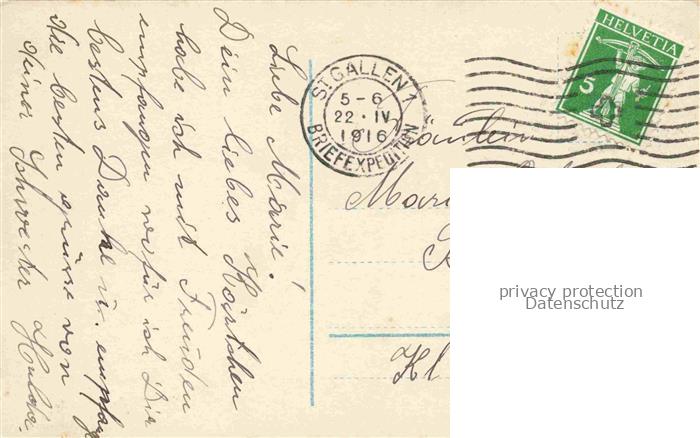 Liebe Marie!
Dein liebes Kärtchen
habe ich mit Freuden
empfangen wofür ich Dir
bestens Danke u. empfang
die besten Grüsse von
deiner Schwester Hulda.
ST. GALLEN 1
5-6
22·IV
1916
BRIEFEXPEDITION
HELVETIA
5
Fräulein
Mari
Kl
privacy protection
Datenschutz